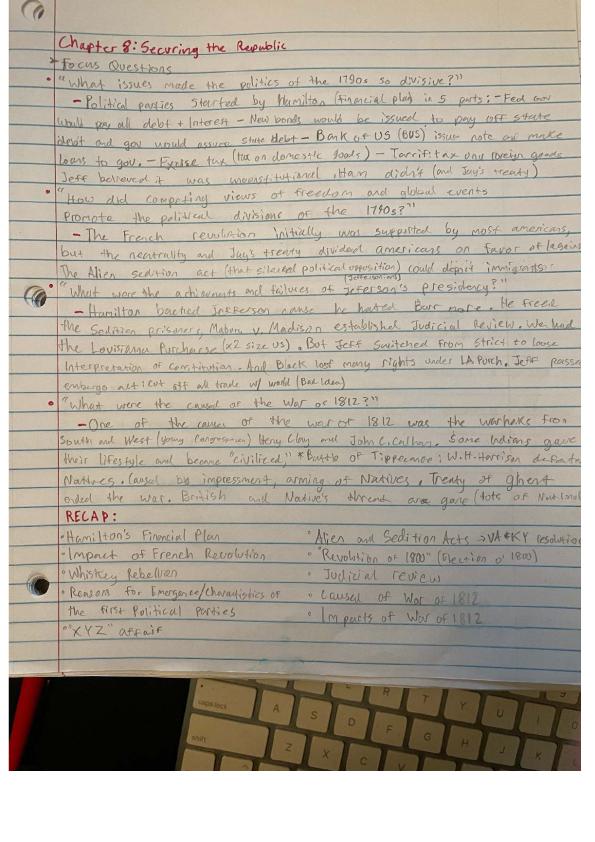 Chapter 8: Securing the Republic
Focus Questions
• "What issues made the politics of the 1790s so divisive?"
- Political parties started by Hamilton (financial plan) in 5 parts: - Fed Gov
would pay all debt + Interest - New bonds would be issued to pay off state
debt and gov would assume state debt - Bank of US (BUS) issue note and make
loans to gov. - Excise tax (tax on domestic goods) - Tarrif: tax on foreign goods
Jeff believed it was unconstitutional, Ham didn't (and Jay's treaty)
• "How did competing views of freedom and global events
Promote the political divisions of the 1790s?"
- The French revolution initially was supported by most americans,
but the neutrality and Jay's treaty divided americans on favor of
The Alien sedition act (that silenced political opposition) could deport immigrants.
(Jeffersonians)
• "What were the achievments and failures of Jefferson's presidency?"
- Hamilton backed Jefferson cause he hated Burr more. He freed
the Sedition prisoners, Mabury v. Madison established Judicial Review. We had
the Louisiana Purcharse (x2 size US). But Jeff Switched from strict to loose
Interpretation of constitution. And Black lost many rights under LA Purch. Jeff passed
embargo act: cut off all trade w/ world (Bad idea)
• "What were the causes of the War of 1812?"
- One of the causes of the war of 1812 was the warhaks from
South and West (young Congressmen) Henry Clay and John C. Calhoun. Some Indians gave
their lifestyle and became "civilized," *Battle of Tippecanoe: W.H. Harrison
Natives. Caused by impressment, arming of Natives. Treaty of ghent
ended the war. British and Native's threat are gone (lots of
RECAP:
• Hamilton's Financial Plan
• Impact of French Revolution
• Whiskey Rebellion
• Reasons for Emergence/Charactistics of
the first Political Parties
• "XYZ" affair
• Alien and Sedition Acts → VA & KY resolution
• "Revolution of 1800" (Election o' 1800)
• Judicial review
• Causes of War of 1812
• Impacts of War of 1812
caps lock
shift
A
S
D
F
G
H
J
K
Z
X
C
V
R
T
Y
U
I